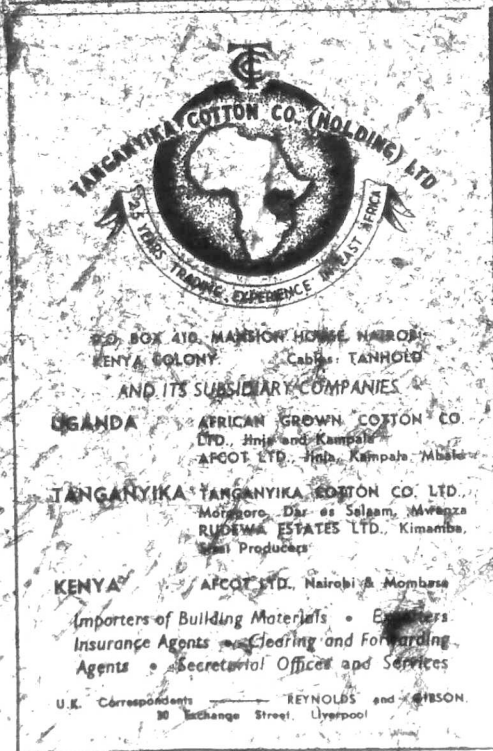 TCC
TANGANYIKA COTTON CO. (HOLDING) LTD
25 YEARS TRADING EXPERIENCE IN EAST AFRICA
P.O. BOX 410, MANSION HOUSE, NAIROBI
KENYA COLONY Cables: TANHOLD
AND ITS SUBSIDIARY COMPANIES
UGANDA AFRICAN GROWN COTTON CO.
LTD., Jinja and Kampala
AFCOT LTD. Jinja, Kampala, Mbale
TANGANYIKA TANGANYIKA COTTON CO. LTD.,
Morogoro, Dar es Salaam, Mwanza
RUDEWA ESTATES LTD., Kimamba,
Sisal Producers
KENYA AFCOT LTD., Nairobi & Mombasa
Importers of Building Materials • Exporters
Insurance Agents • Clearing and Forwarding
Agents • Secretarial Offices and Services
U.K. Correspondents ——— REYNOLDS and GIBSON,
30 Exchange Street, Liverpool